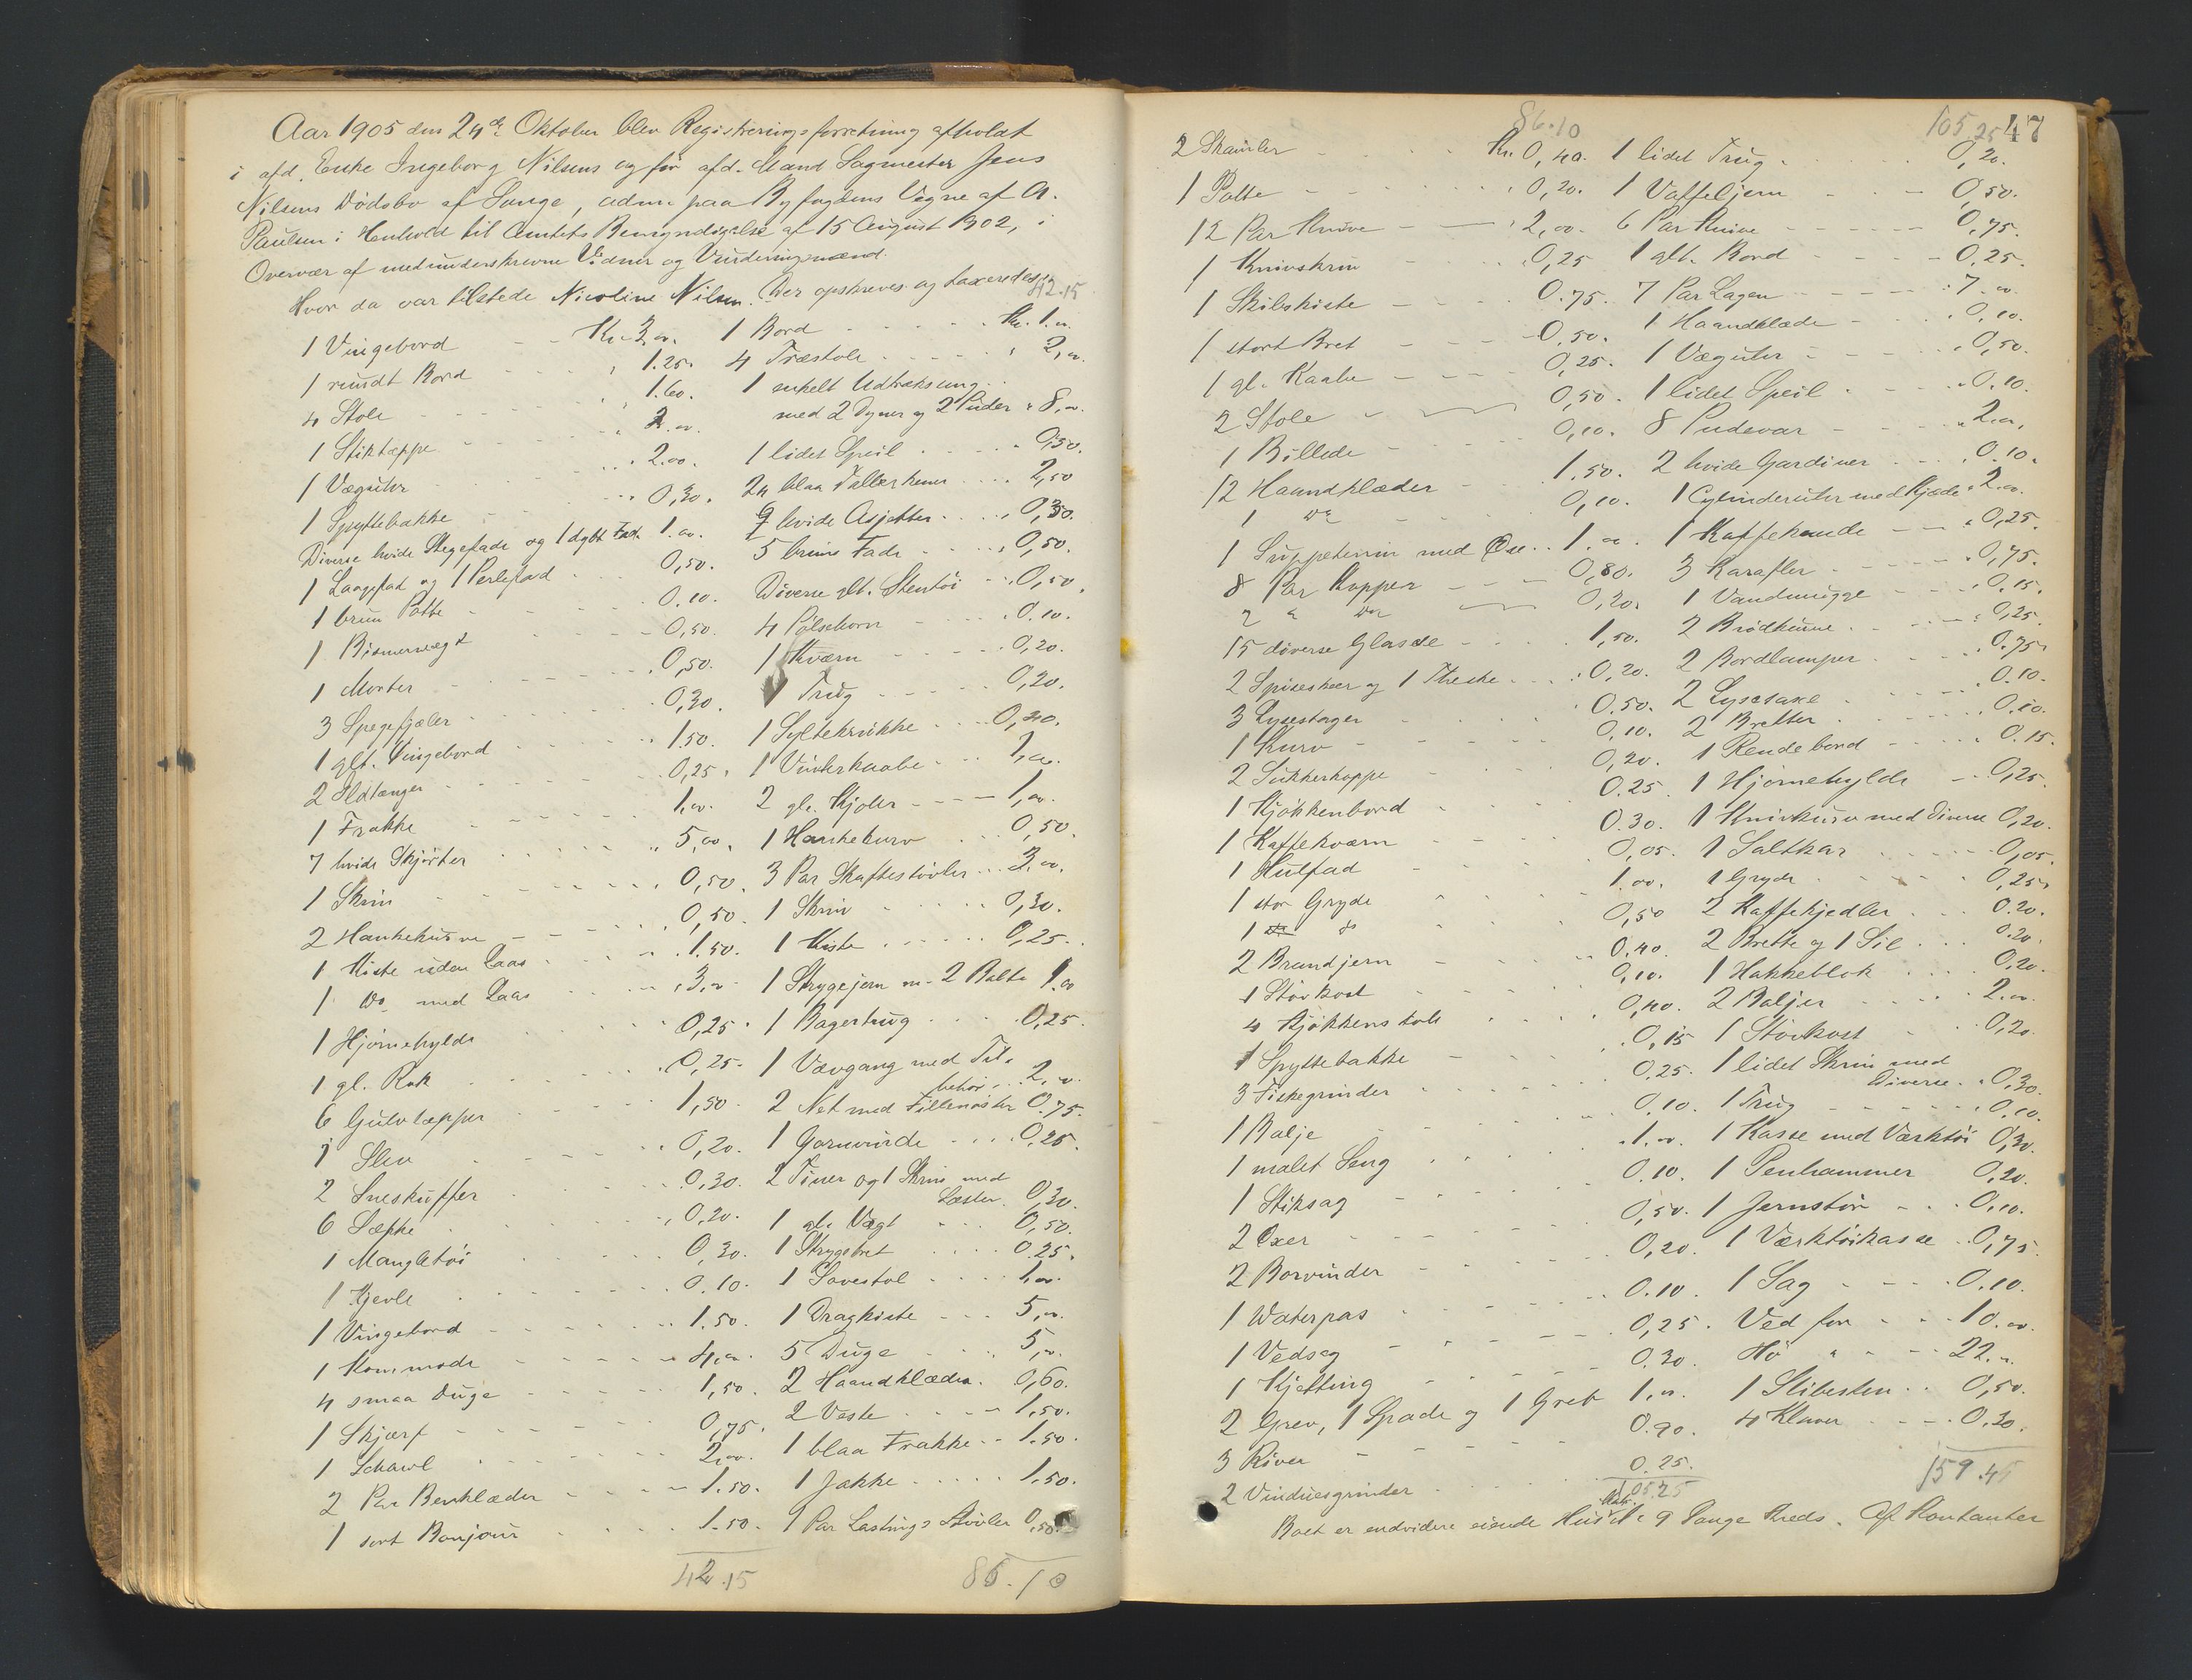 Aar 1905 den 24de Oktober blev Registreringsforretning afholdt
i afd. Enke Ingeborg Nilsens og før afd. Mand Sagmester Jens
Nilsens Dødsbo af Sange, adm. paa Byfogdens Vegne af A.
Paulsen i Henhold til Amtets Bemyndigelse af 15 August 1302, i
Overvær af medunderskrevne Vidner og Vurderingsmænd.
Hvor da var tilstede Nicoline Nilsen. Der opskreves og taxeredes:
42.15
1 Vingebord Kr. 3,00.
1 rundt Bord 1.25.
4 Stole 1.60.
1 Stiktæppe 2.00.
1 Væguhr 2.00.
1 Spyttebakke 0,30.
Diverse hvide Stegefade og 1 dybt Fad. 1.00.
1 Laagefad og 1 Perlefad 0,50.
1 brun Potte 0.10.
1 Bismervægt 0,50.
1 Morter 0,50.
3 Spegefjæler 0,30.
1 glt. Vingebord 1.50.
2 Ildtænger 0,25.
1 Frakke 1.00.
7 hvide Skjørter 5,00.
1 Skrin 0,50.
2 Hankekurve 0,50.
1 Kiste uden Laas 1.50.
1 do. med Laas 3,00
1 Hjørnehylde 0,25.
1 gl. Rok 0,25.
6 Gulvtæpper 1,50.
1 Slev 0,20.
2 Sneskuffer 0,30.
6 Sække 0,20.
1 Mangletøi 0,30.
1 Kjevle 0.10.
1 Vingebord 1.50.
1 Kommode 4,00.
4 smaa Duge 1,50.
1 Skjærf 0,75.
1 Schawl 2,00.
2 Par Benklæder 1.50.
1 sort Bonjour 1.50.
42.15
1 Bord Kr. 1.00.
4 Træstole 2,00.
1 enkelt Udtræksseng
med 2 Dyner og 2 Puder 8,00.
1 lidet Speil 0,50.
24 blaa Tallerkener 2,50
9 hvide Asjetter 0,30.
5 brune Fade 0,50.
Diverse glt. Stentøi 0,50.
4 Pølsehorn 0.10.
1 Kværn 0,20.
1 Trug 0,20.
1 Syltekrukke 0,20.
1 Vinterkaabe 1,00.
2 gle. Kjoler 1,00.
1 Hankekurv 0,50.
3 Par Skaftestøvler 3.00.
1 Skrin 0,30.
1 Kiste 0,25.
1 Strygejern m. 2 Bolte 1.00
1 Bagertrug 0,25.
1 Vævgang med Til-
behør 2,00.
2 Net med Fillenøster 0.75.
1 Garnvinde 0,25.
2 Tiner og 1 Skrin med
Læster 0,30.
1 gl. Vægt 0,50.
1 Strygebret 0.25.
1 Sovestol 1,00.
1 Dragkiste 5,00.
5 Duge 5,00.
2 Haandklæder. 0,60.
2 Veste 1,50.
1 blaa Frakke 1.50.
1 Jakke 1.50.
1 Par Lastings Støvler 0,50.
86.10
47
86.10
105.25
2 Skamler Kr. 0,40.
1 Potte 0,20.
12 Par Knive 2,00.
1 Knivskrin 0,25
1 Skibskiste 0.75.
1 stort Bret 0,50.
1 gl. Kaabe 0,25.
2 Stole 0,50.
1 Billede 0,10.
12 Haandklæder 1.50.
1 do 0,10.
1 Suppeterrin med Øse 1.00.
8 Par Kopper 0,80.
2 " do 0,20.
15 diverse Glasse 1,50.
2 Spiseskeer og 1 Theske 0,20.
3 Lysestager 0.50.
1 Kurv 0,10.
2 Sukkerkoppe 0,20.
1 Kjøkkenbord 0.25.
1 Kaffekværn 0.30.
1 Hulfad 0,05.
1 stor Gryde 1.00.
1 do 0,50
2 Brandjern 0.40.
1 Støvkost 0,10.
4 Kjøkkenstole 0,40.
1 Spyttebakke 0,15
3 Fiskegrinder 0.25.
1 Balje 0.10.
1 malet Seng 1.00.
1 Stiksag 0.10.
2 Øxer 0,50.
2 Borvinder 0,20.
1 Waterpas 0.10.
1 Vedsag 0,25.
1 Kjetting 0.30.
2 Grev, 1 Spade og 1 Greb 1,00.
3 River 0.90.
2 Vinduesgrinder 0.25.
105.25
1 lidet Trug 0,20.
1 Vaffeljern 0,50.
6 Par Knive 0,75.
1 glt. Bord 0.25.
7 Par Lagen 7.00
1 Haandklæde 0,10.
1 Væguhr 0,50.
1 lidet Speil 0.10.
8 Pudevar 2.00.
2 hvide Gardiner 0.10.
1 Cylinderuhr med Kjæde 2.00.
1 Kaffekande 0,25.
3 Karafler 0,75.
1 Vandmugge 0,15.
2 Brødkurve 0,25.
2 Bordlamper 0.75.
2 Lysesaxe 0.10.
2 Bretter 0.10.
1 Rendebord 0.15.
1 Hjørnehylde 0,25.
1 Knivkurv med Diverse 0,20.
1 Saltkar 0,05.
1 Gryde 0,25.
2 Kaffekjedler 0.20.
2 Brette og 1 Sil 0.20.
1 Hakkeblok 0,20.
2 Baljer 2.00.
1 Støvkost 0,20.
1 lidet Skrin med
Diverse 0,30.
1 Trug 0,10.
1 Kasse med Værktøi 0,30.
1 Penhammer 0,20.
1 Jernstør 0,10.
1 Værktøikasse 0,75.
1 Sag 0.10.
Ved for 10.00.
Hø " 22.00.
1 Slibesten 0,50.
4 Klaver 0.30.
159.45
Boet er endvidere eiende Hus Matr. № 9 Sange Kreds. Af Kontanter